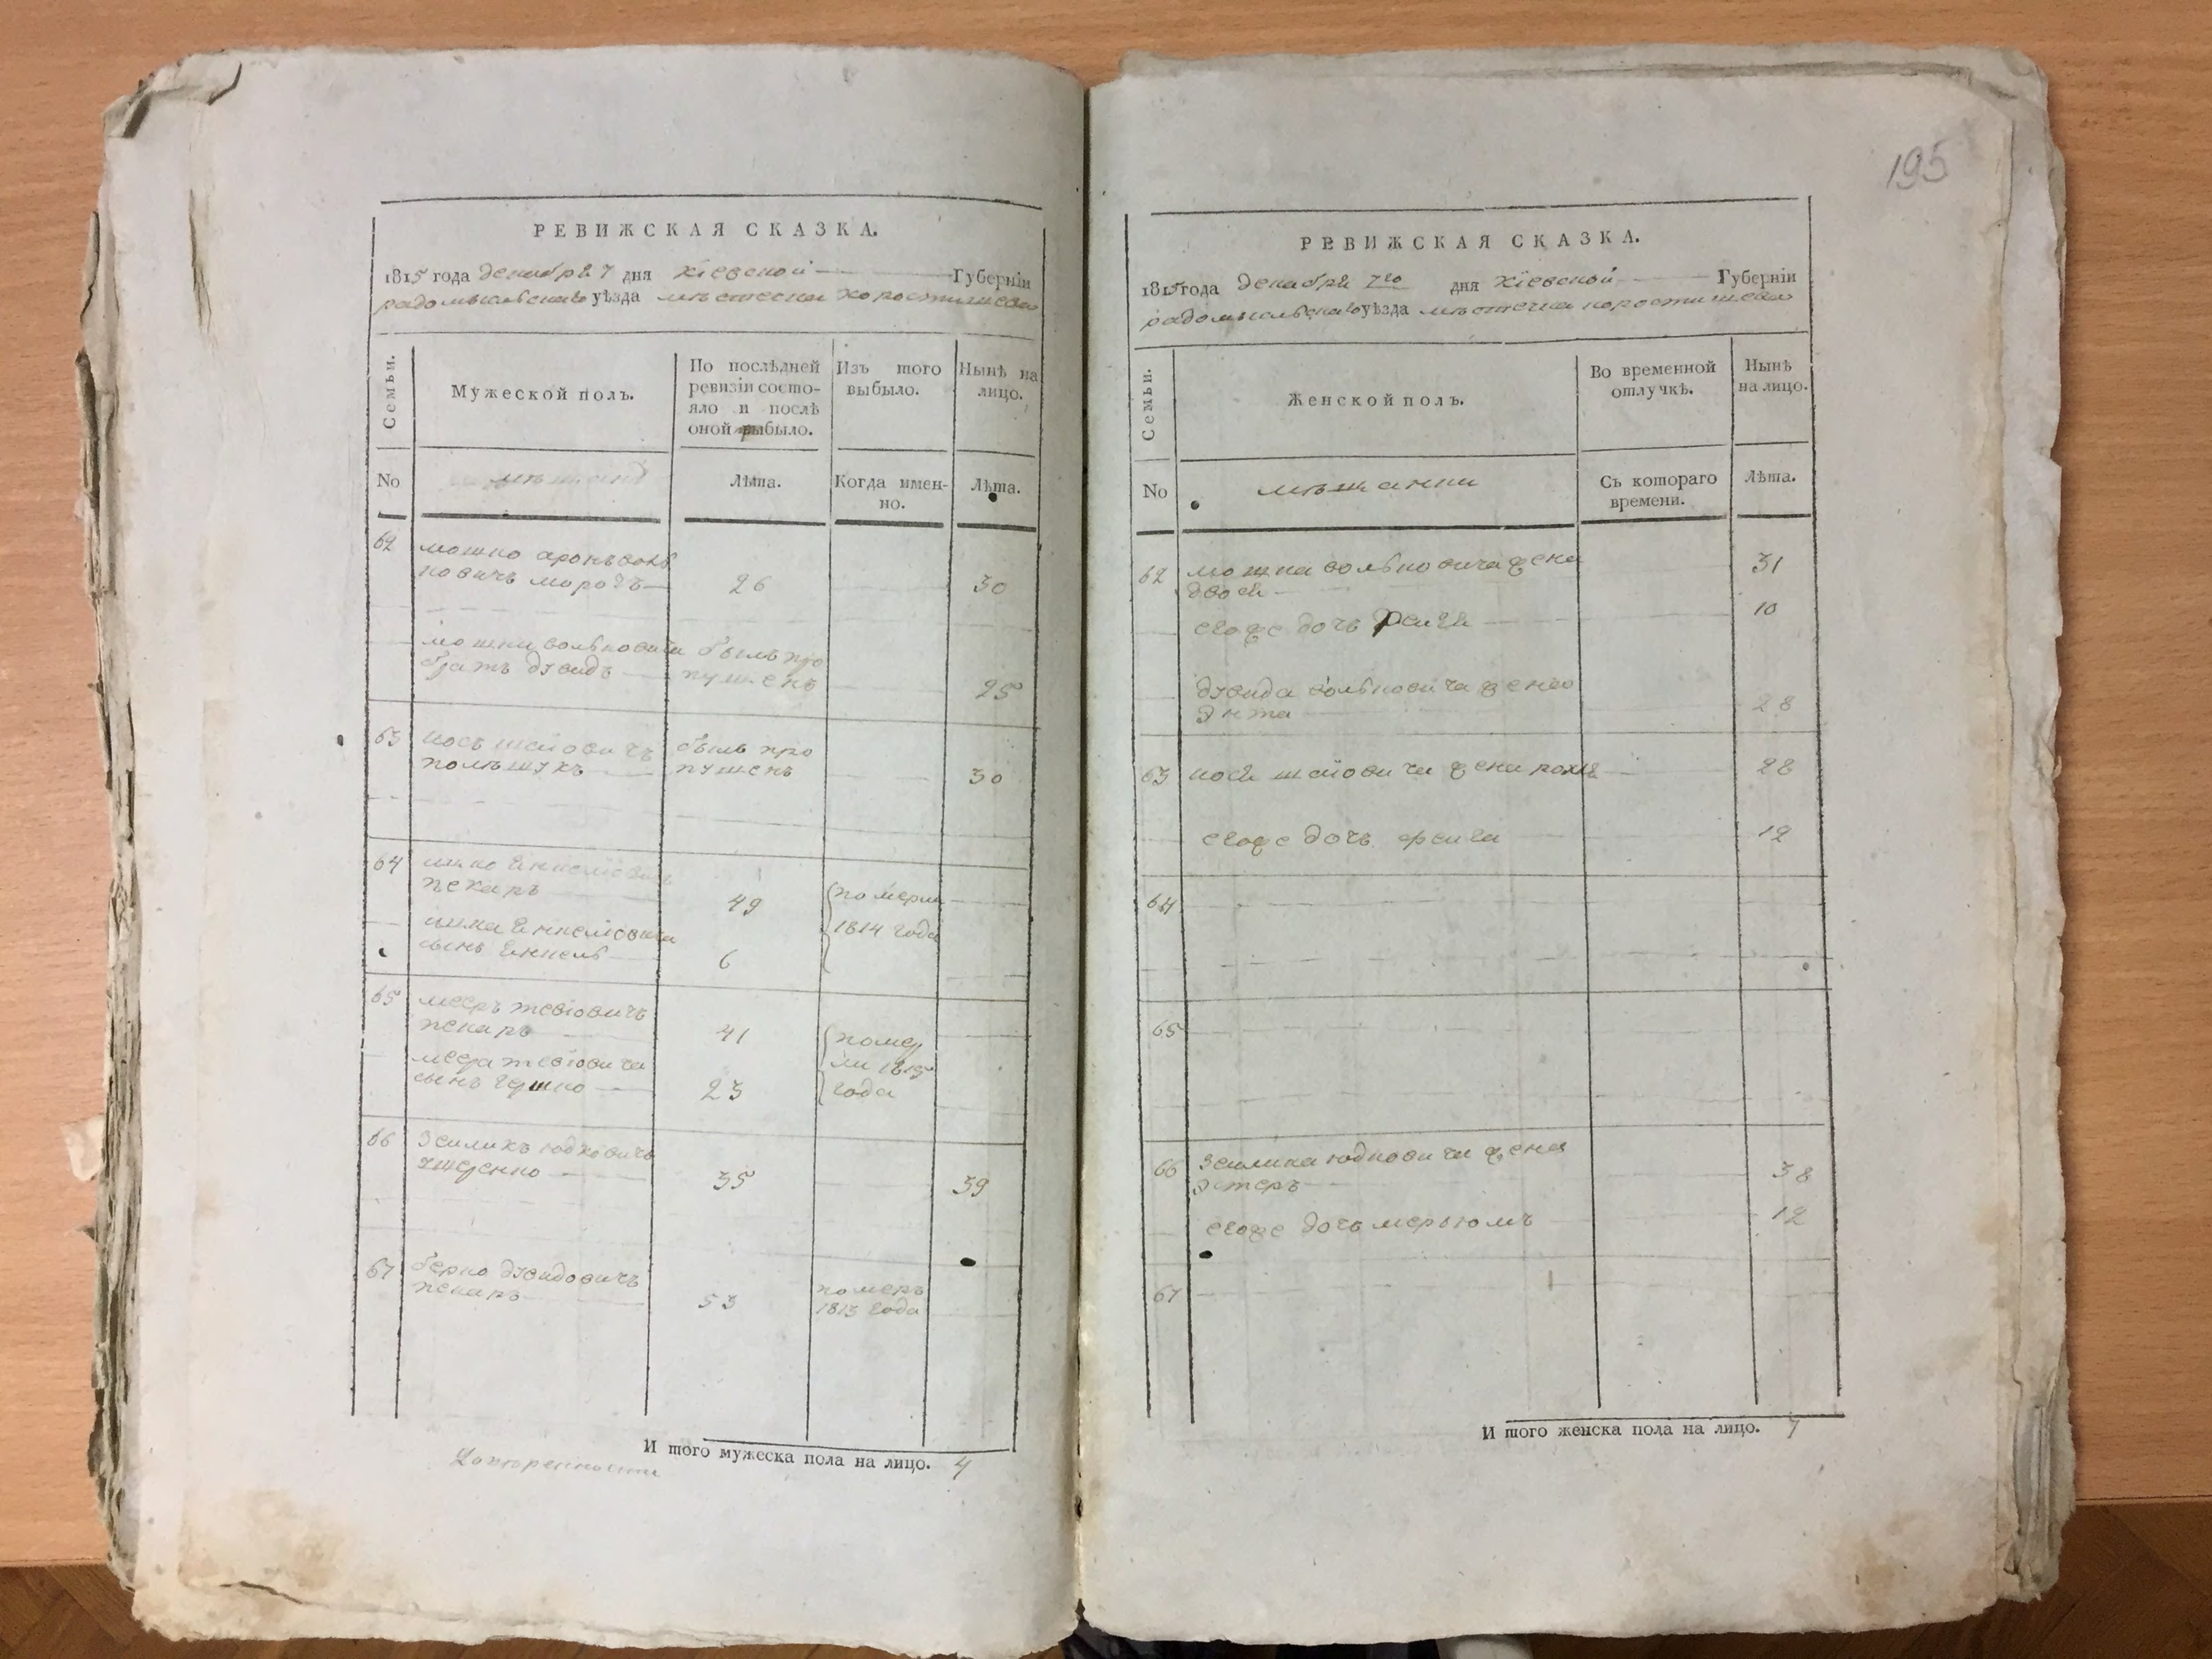 РЕВИЖСКАЯ СКАЗКА.
1815 года декабря 7 дня кіевской Губерніи
радомысльскаго уѣзда мѣстечка коростишева
Семьи.
Мужеской полъ.
По послѣдней ревизіи состо-
яло и послѣ
оной выбыло.
Изъ того
выбыло.
Нынѣ на
лицо.
No
мѣщанъ
Лѣта.
Когда имен-
но.
Лѣта.
62 мошко аронъ воль
ковичъ морозъ 26 30
мошки вольковича былъ про
братъ дувидъ пущенъ 25
63 іось шаіовичъ былъ про
полѣщукъ пущенъ 30
64 ицко
пекаръ 49 померли
ицка 1814 года
сынъ 6
65 мееръ тевіовичъ
пекаръ 41 помер
меера тевіовича ли 1813
сынъ гершко 23 года
66 зеиликъ юдковичъ
35 39
67 берко дувидовичъ
пекаръ 53 померъ
1813 года
И того мужеска пола на лицо. 4
195
РЕВИЖСКАЯ СКАЗКА.
1815 года декабря 7го дня кіевской Губерніи
радомысльскаго уѣзда мѣстечка коростишева
Семьи.
Женской полъ.
Во временной
отлучкѣ.
Нынѣ
на лицо.
No
мѣщанки
Съ котораго
времени.
Лѣта.
62 мошка вольковича жена 31
двося
егоже дочь 10
дувида вольковича жена
энта 28
63 іося шаіовича жена рохля 28
егоже дочь фейга 12
64
65
66 зеилика юдковича жена
эстеръ 38
егоже дочь мерьюмъ 12
67
И того женска пола на лицо. 7